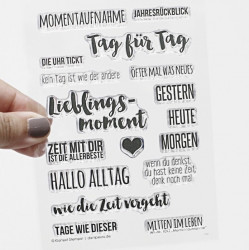 MOMENTAUFNAHME
JAHRESRÜCKBLICK
Tag für Tag
DIE UHR TICKT
kein Tag ist wie der andere
ÖFTER MAL WAS NEUES
Lieblings-
moment
GESTERN
HEUTE
MORGEN
ZEIT MIT DIR
IST DIE ALLERBESTE
wenn du denkst,
du hast keine Zeit,
denk noch mal.
HALLO ALLTAG
wie die Zeit vergeht
TAGE WIE DIESER
MITTEN IM LEBEN